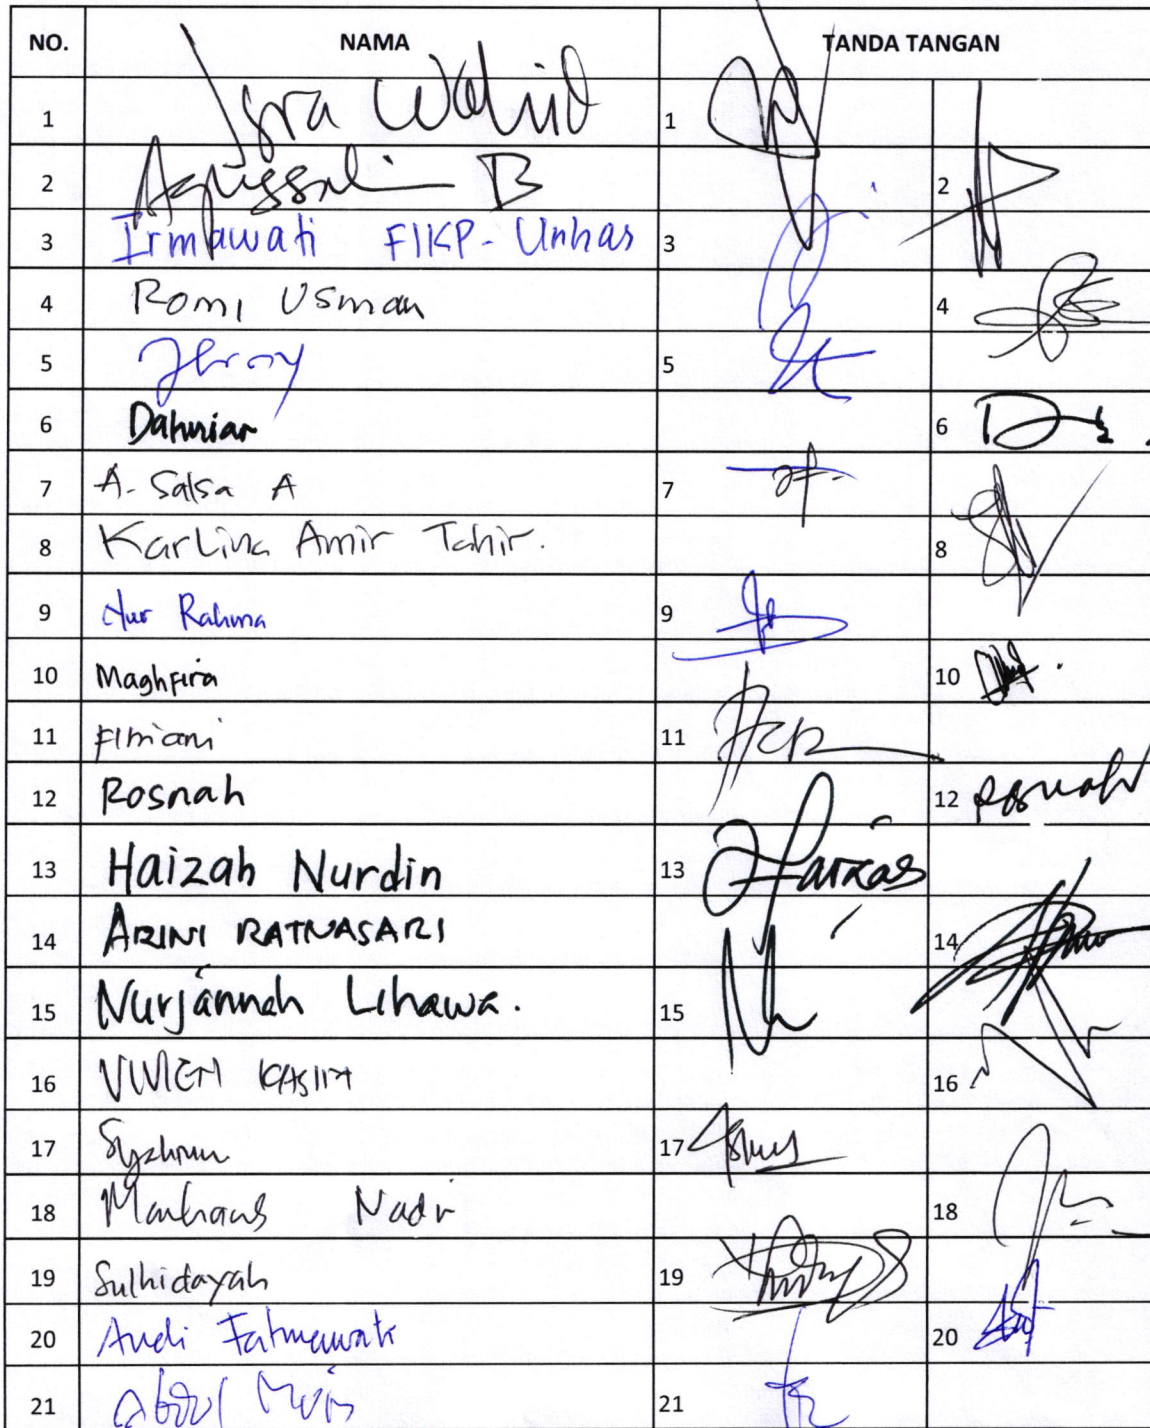 NO. NAMA TANDA TANGAN
1 Isra Wahid 1
2 Agussalim B 2
3 Irmawati FIKP-Unhas 3
4 Romi Usman 4
5 5
6 Dahniar 6
7 A. Salsa A 7
8 Karlina Amir Tahir. 8
9 Nur Rahma 9
10 Maghfira 10
11 Fitriani 11
12 Rosnah 12 Rosnah
13 Haizah Nurdin 13
14 ARINI RATNASARI 14
15 Nurjannah Lihawa. 15
16 VIVIEN KASIM 16
17 17
18 Nadir 18
19 Sulhidayah 19
20 Andi Fatmawati 20
21 Abdul Muis 21